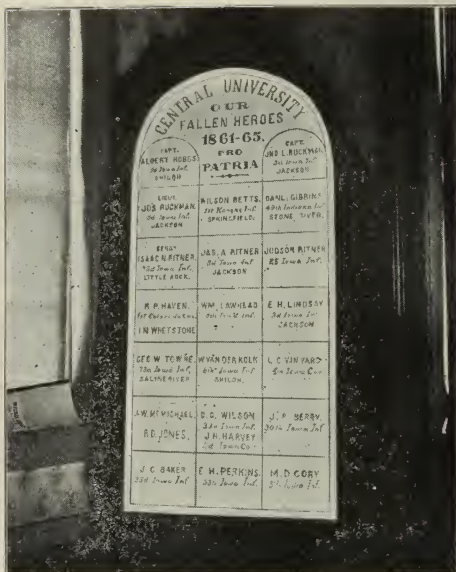 CENTRAL UNIVERSITY
OUR
FALLEN HEROES
1861-65.
PRO
PATRIA
CAPT.
ALBERT HOBBS.
3d Iowa Inf.
SHILOH
CAPT.
JNO L. RUCKMAN.
3d Iowa Inf
JACKSON
LIEUT.
JOS RUCKMAN.
3d Iowa Inf.
JACKSON
WILSON BETTS.
1st Kansas Inf.
SPRINGFIELD.
DANL. GIBBINS
49th Indiana Inf
STONE RIVER.
SERGT
ISAAC N. RITNER.
33d Iowa Inf.
LITTLE ROCK.
JAS. A RITNER
3d Iowa Inf
JACKSON
JUDSON RITNER
Iowa Inf.
R P. HAVEN.
1st
IN WHETSTONE
WM. LAWHEAD
Inf.
E. H. LINDSAY
3d Iowa Inf
JACKSON
GEO W TOWNE.
Iowa Inf.
SALINE RIVER
W VAN DER KOLK
Iowa Inf
SHILOH.
L. C VINYARD
Iowa Cav
J. W. MCMICHAEL.
R D JONES.
D. C. WILSON
33d Iowa Inf.
J. H. HARVEY
Iowa Cav
BERRY.
Iowa Inf
J C BAKER
33d Iowa Inf.
E H. PERKINS.
33d Iowa Inf.
M. D CORY
Iowa Inf.